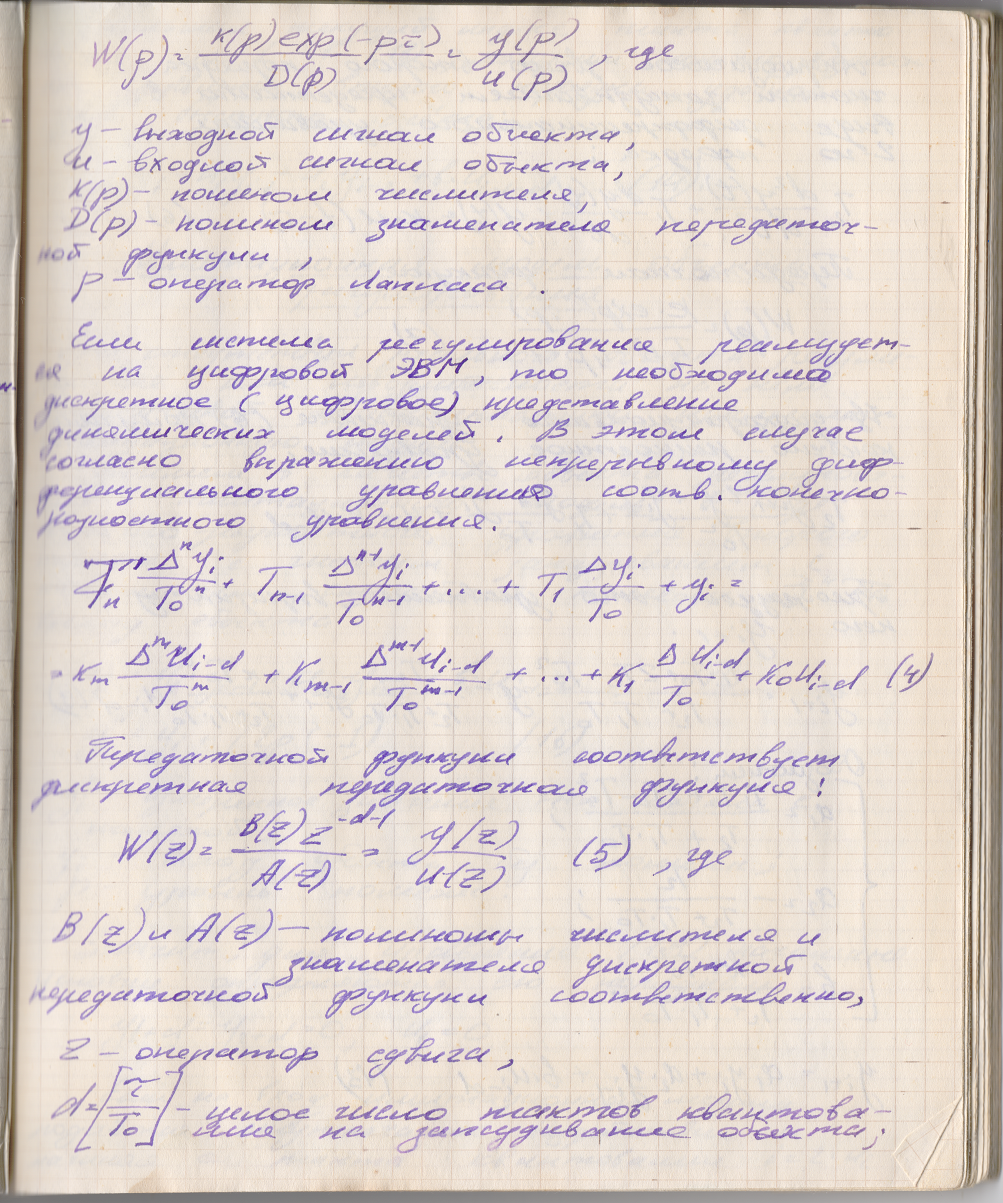 W(p) = K(p) exp(-pτ) / D(p) = y(p) / u(p) , где
y – выходной сигнал объекта,
u – входной сигнал объекта,
K(p) – полином числителя,
D(p) – полином знаменателя передаточ-
ной функции,
p – оператор Лапласа .
Если система регулирования реализует-
ся на цифровой ЭВМ, то необходимо
дискретное (цифровое) представление
динамических моделей. В этом случае
согласно выражению непрерывному диф-
ференциального уравнения соотв. конечно-
разностного уравнения.
Tn Δ^n yi / T0^n + Tm-1 Δ^n-1 yi / T0^n-1 + ... + T1 Δyi / T0 + yi =
= Km Δ^m Ui-d / T0^m + Km-1 Δ^m-1 Ui-d / T0^m-1 + ... + K1 Δ Ui-d / T0 + K0 Ui-d (4)
Передаточной функции соответствует
дискретная передаточная функция:
W(z) = B(z) z^-d-1 / A(z) = y(z) / u(z) (5) , где
B(z) и A(z) – полиномы числителя и
знаменателя дискретной
передаточной функции соответственно,
z – оператор сдвига,
d = [τ / T0] – целое число тактов квантова-
ния на запаздывание объекта;